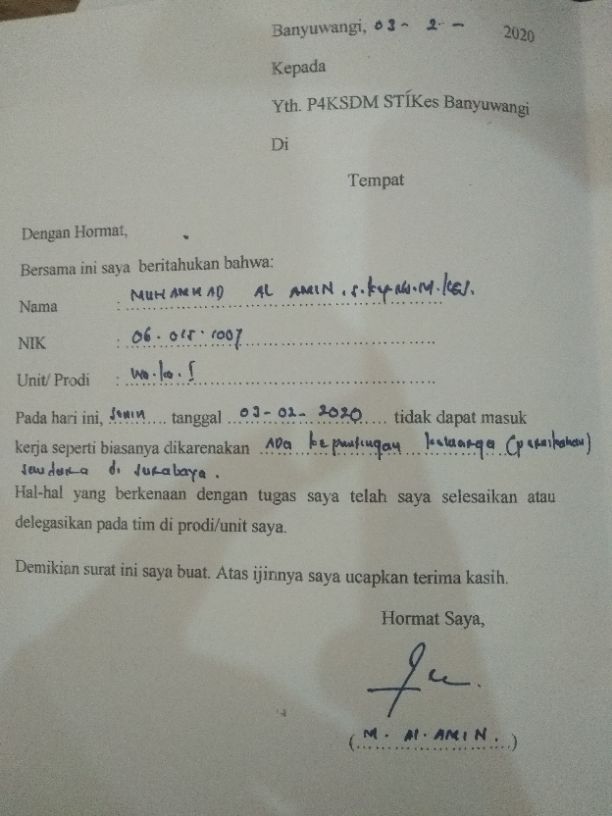 Banyuwangi, 03 - 2 - 2020
Kepada
Yth. P4KSDM STIKes Banyuwangi
Di
Tempat
Dengan Hormat,
Bersama ini saya beritahukan bahwa:
Nama : MUHAMMAD AL AMIN. S.Kep.Ns.M.Kes.
NIK : 06.015.1007
Unit/ Prodi :
Pada hari ini, Senin tanggal 03-02-2020 tidak dapat masuk
kerja seperti biasanya dikarenakan ADA kepentingan keluarga (pernikahan)
saudara di surabaya.
Hal-hal yang berkenaan dengan tugas saya telah saya selesaikan atau
delegasikan pada tim di prodi/unit saya.
Demikian surat ini saya buat. Atas ijinnya saya ucapkan terima kasih.
Hormat Saya,
(M. Al. AMIN.)